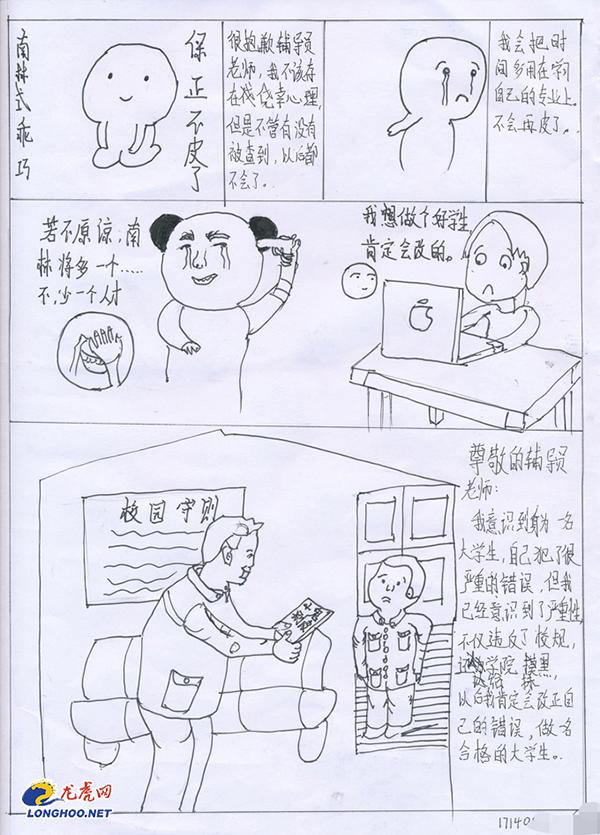 南林式乖巧
保正不皮了
很抱歉辅导员
老师，我不该存
在侥幸心理，
但是不管有没有
被查到，以后都
不会了。
我会把时
间多用在学习
自己的专业上。
不会再皮了。
若不原谅，南
林将多一个……
不，少一个人才
AAA
我想做个好学生，
肯定会改的。
校园守则
检讨
尊敬的辅导员
老师：
我意识到身为一名
大学生，自己犯了很
严重的错误，但我
已经意识到了严重性，
不仅违反了校规，
学院抹黑，
以后我肯定会改正自
己的错误，做一名
合格的大学生。
17140
龙虎网
LONGHOO.NET